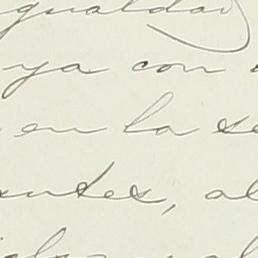 gualdad
ya con
en la se
antes, al